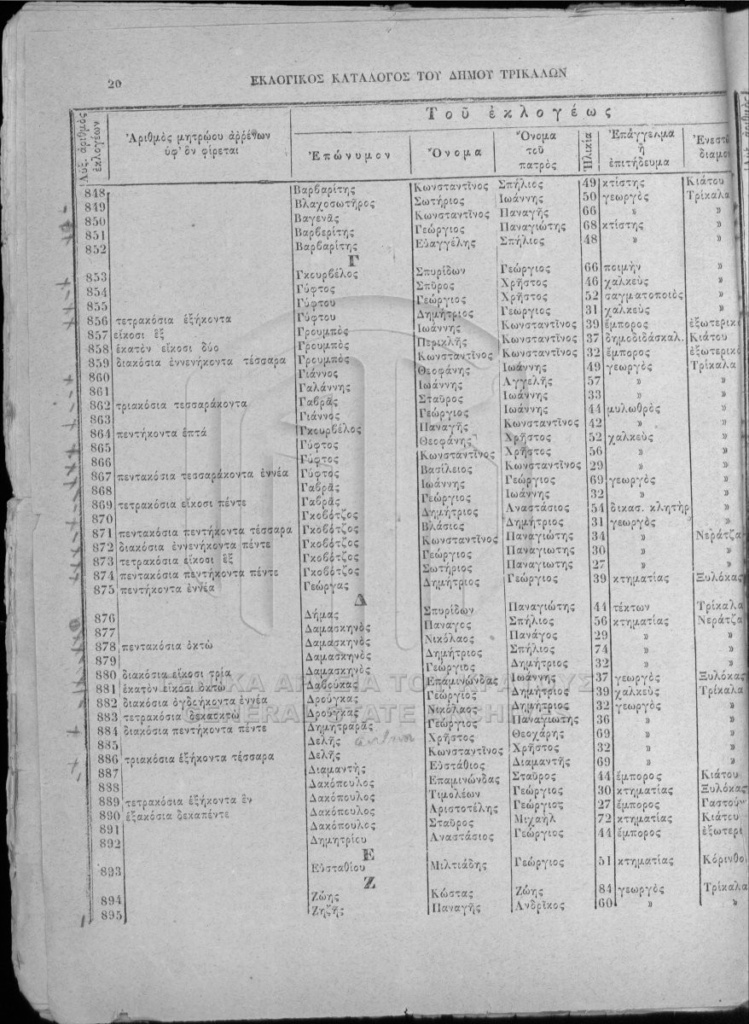 20 ΕΚΛΟΓΙΚΟΣ ΚΑΤΑΛΟΓΟΣ ΤΟΥ ΔΗΜΟΥ ΤΡΙΚΑΛΩΝ
Αὔξ. ἀριθμὸς ἐκλογέων
Ἀριθμὸς μητρῴου ἀρρένων ὑφ' ὃν φέρεται
Τοῦ ἐκλογέως
Ἐπώνυμον
Ὄνομα
Ὄνομα τοῦ πατρὸς
Ἡλικία
Ἐπάγγελμα ἢ ἐπιτήδευμα
848 Βαρβαρίτης Κωνσταντῖνος Σπήλιος 49 κτίστης Κιάτου
849 Βλαχοσωτῆρος Σωτήριος Ἰωάννης 50 γεωργὸς Τρίκαλα
850 Βαγενᾶς Κωνσταντῖνος Παναγῆς 66 » »
851 Βαρβερίτης Γεώργιος Παναγιώτης 68 κτίστης »
852 Βαρβαρίτης Εὐαγγέλης Σπήλιος 48 » »
Γ
853 Γκουρβέλος Σπυρίδων Γεώργιος 66 ποιμὴν »
854 Γύφτος Σπῦρος Χρῆστος 46 χαλκεὺς »
855 Γύφτου Γεώργιος Χρῆστος 52 σαγματοποιὸς »
856 τετρακόσια ἑξήκοντα Γύφτου Δημήτριος Γεωργιος 31 χαλκεὺς »
857 εἴκοσι ἓξ Γρουμπὸς Ἰωάννης Κωνσταντῖνος 39 ἔμπορος ἐξωτερικ
858 ἑκατὸν εἴκοσι δύο Γρουμπὸς Περικλῆς Κωνσταντῖνος 37 δημοδιδάσκαλ. Κιάτου
859 διακόσια ἐννενήκοντα τέσσαρα Γρουμπὸς Κωνσταντῖνος Κωνσταντῖνος 32 ἔμπορος ἐξωτερικὸ
860 Γιάννος Θεοφάνης Ἰωάννης 49 γεωργὸς Τρίκαλα
861 Γαλάννης Ἰωάννης Ἀγγελῆς 57 » »
862 τριακόσια τεσσαράκοντα Γαβρᾶς Σταῦρος Ἰωάννης 33 » »
863 Γιάννος Γεώργιος Ἰωάννης 44 μυλωθρὸς »
864 πεντήκοντα ἑπτά Γκουρβέλος Παναγῆς Κωνσταντῖνος 42 » »
865 Γύφτος Θεοφάνης Χρῆστος 52 χαλκεὺς »
866 Γύφτος Κωνσταντῖνος Χρῆστος 56 » »
867 πεντακόσια τεσσαράκοντα ἐννέα Γύφτος Βασίλειος Κωνσταντῖνος 29 » »
868 Γαβρᾶς Ἰωάννης Γεώργιος 69 γεωργὸς »
869 τετρακόσια εἴκοσι πέντε Γαβρᾶς Γεώργιος Ἰωάννης 32 » »
870 Γκοβότζος Δημήτριος Ἀναστάσιος 54 δικασ. κλητὴρ »
871 πεντακόσια πεντήκοντα τέσσαρα Γκοβότζος Βλάσιος Δημήτριος 31 γεωργὸς »
872 διακόσια ἐννενήκοντα πέντε Γκοβότζος Κωνσταντῖνος Παναγιώτης 34 » Νεράτζα
873 τετρακόσια εἴκοσι ἓξ Γκοβότζος Γεώργιος Παναγιωτης 30 » »
874 πεντακόσια πεντήκοντα πέντε Γκοβότζος Σωτήριος Παναγιωτης 27 » »
875 πεντήκοντα ἐννέα Γεώργας Δημήτριος Γεώργιος 39 κτηματίας Ξυλόκα
Δ
876 Δήμας Σπυρίδων Παναγιώτης 44 τέκτων Τρίκαλα
877 Δαμασκηνὸς Πανάγος Σπήλιος 56 κτηματίας Νεράτζα
878 πεντακόσια ὀκτώ Δαμασκηνὸς Νικόλαος Πανάγος 29 » »
879 Δαμασκηνὸς Δημήτριος Σπήλιος 74 » »
880 διακόσια εἴκοσι τρία Δαμασκηνὸς Γεώργιος Δημήτριος 32 » »
881 ἑκατὸν εἴκοσι ὀκτώ Δαβούκας Ἐπαμινώνδας Ἰωάννης 37 γεωργὸς Ξυλόκας
882 διακόσια ὀγδοήκοντα ἐννέα Δρούγκας Γεώργιος Δημήτριος 39 χαλκεὺς Τρίκαλα
883 τετρακόσια δεκαοκτώ Δρούγκας Νικόλαος Δημήτριος 32 γεωργὸς »
884 διακόσια πεντήκοντα πέντε Δημητραρᾶς Γεώργιος Παναγιώτης 36 » »
885 Δελῆς Χρῆστος Θεοχάρης 69 » »
886 τριακόσια ἑξήκοντα τέσσαρα Δελῆς Κωνσταντῖνος Χρῆστος 32 » »
887 Διαμαντῆς Εὐστάθιος Διαμαντῆς 69 » »
888 Δακόπουλος Ἐπαμινώνδας Σταῦρος 44 ἔμπορος Κιάτου
889 τετρακόσια ἑξήκοντα ἓν Δακόπουλος Τιμολέων Γεώργιος 30 κτηματίας Ξυλόκας
890 ἑξακόσια δεκαπέντε Δακόπουλος Ἀριστοτέλης Γεώργιος 27 ἔμπορος Γαστούν
891 Δακόπουλος Σταῦρος Μιχαὴλ 72 κτηματίας Κιάτου
892 Δημητρίου Ἀναστάσιος Γεώργιος 44 ἔμπορος ἐξωτερι
Ε
893 Εὐσταθίου Μιλτιάδης Γεώργιος 51 κτηματίας Κόρινθο
Ζ
894 Ζώης Κώστας Ζώης 84 γεωργὸς Τρίκαλα
895 Ζηζῆς Παναγῆς Ἀνδρῖκος 60 » »